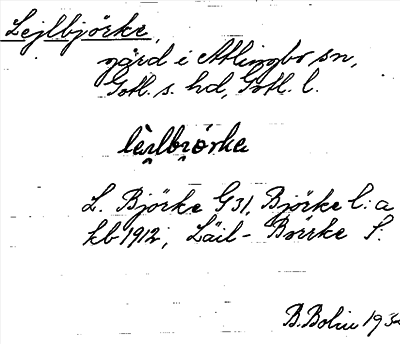 Lejlbjörke,
gård i Atlingbo sn,
Gotl. s. hd, Gotl. l.
L. Björke G 31, Björke l:a
kb 1912; Läil-Börrke S.
B. Bolin 193